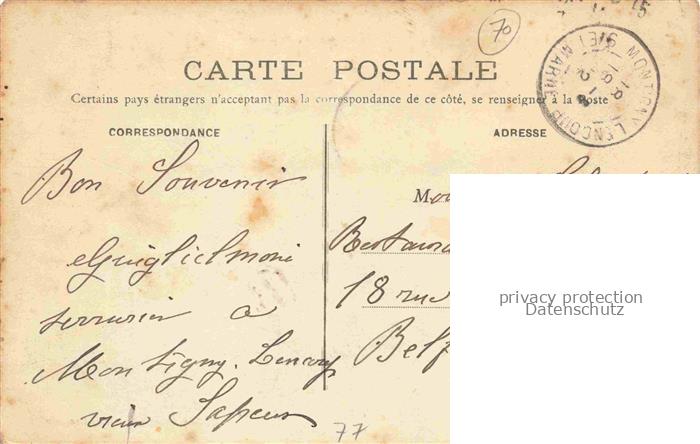 70
MONTIGNY LENCOUP
SET MARNE
CARTE POSTALE
Certains pays étrangers n'acceptant pas la correspondance de ce côté, se renseigner à la Poste
CORRESPONDANCE
Bon Souvenir
Guiglielmoni
serrurier a
Montigny. Lencoup
vieux Sapeur
77
ADRESSE
M
18 rue
Belf
privacy protection
Datenschutz